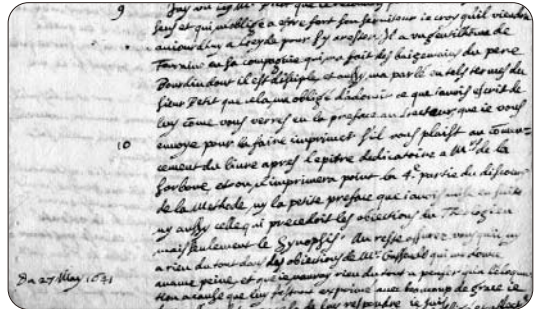 9 J'ay vu icy Mr Picot que ie
sens et qui m'oblige a estre fort son serviteur ie croy qu'il viendra
auiourdhuy a Leyde pour s'y arester. Il a un gentilhome de
Touraine en sa compagnie qui m'a fait des baizemains du pere
Bourdin dont il est disciple, et aussy m'a parlé en tels termes du
sieur Petit que cela m'a obligé d'adoucir ce que i'avois escrit de
luy come vous verres en la preface au Lecteur que ie vous
10 envoye pour la faire imprimer s'il vous plaist au comen=
cement du livre apres l'epitre dedicatoire a Mrs de la
Sorbone, et on n'imprimera point la 4e partie du discours
de la Methode, ny la petite preface que i'avois mise en suite
ny aussy celle qui precedoit les obiections du Theologien
mais seulement le Synopsis. Au reste assurez vous qu'il n'y
a rien du tout dans les obiections de Mr Gassendi qui me donne
Du 27 May 1641
aucune peine, et que ie n'auray rien du tout a penser qu'a
a cause que luy s'estant exprimé avec beaucoup de grace ie
de luy respondre ie suis